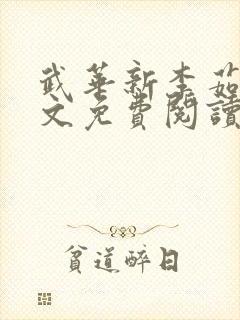 武華新李茹
文免費閱讀
貧道醉日